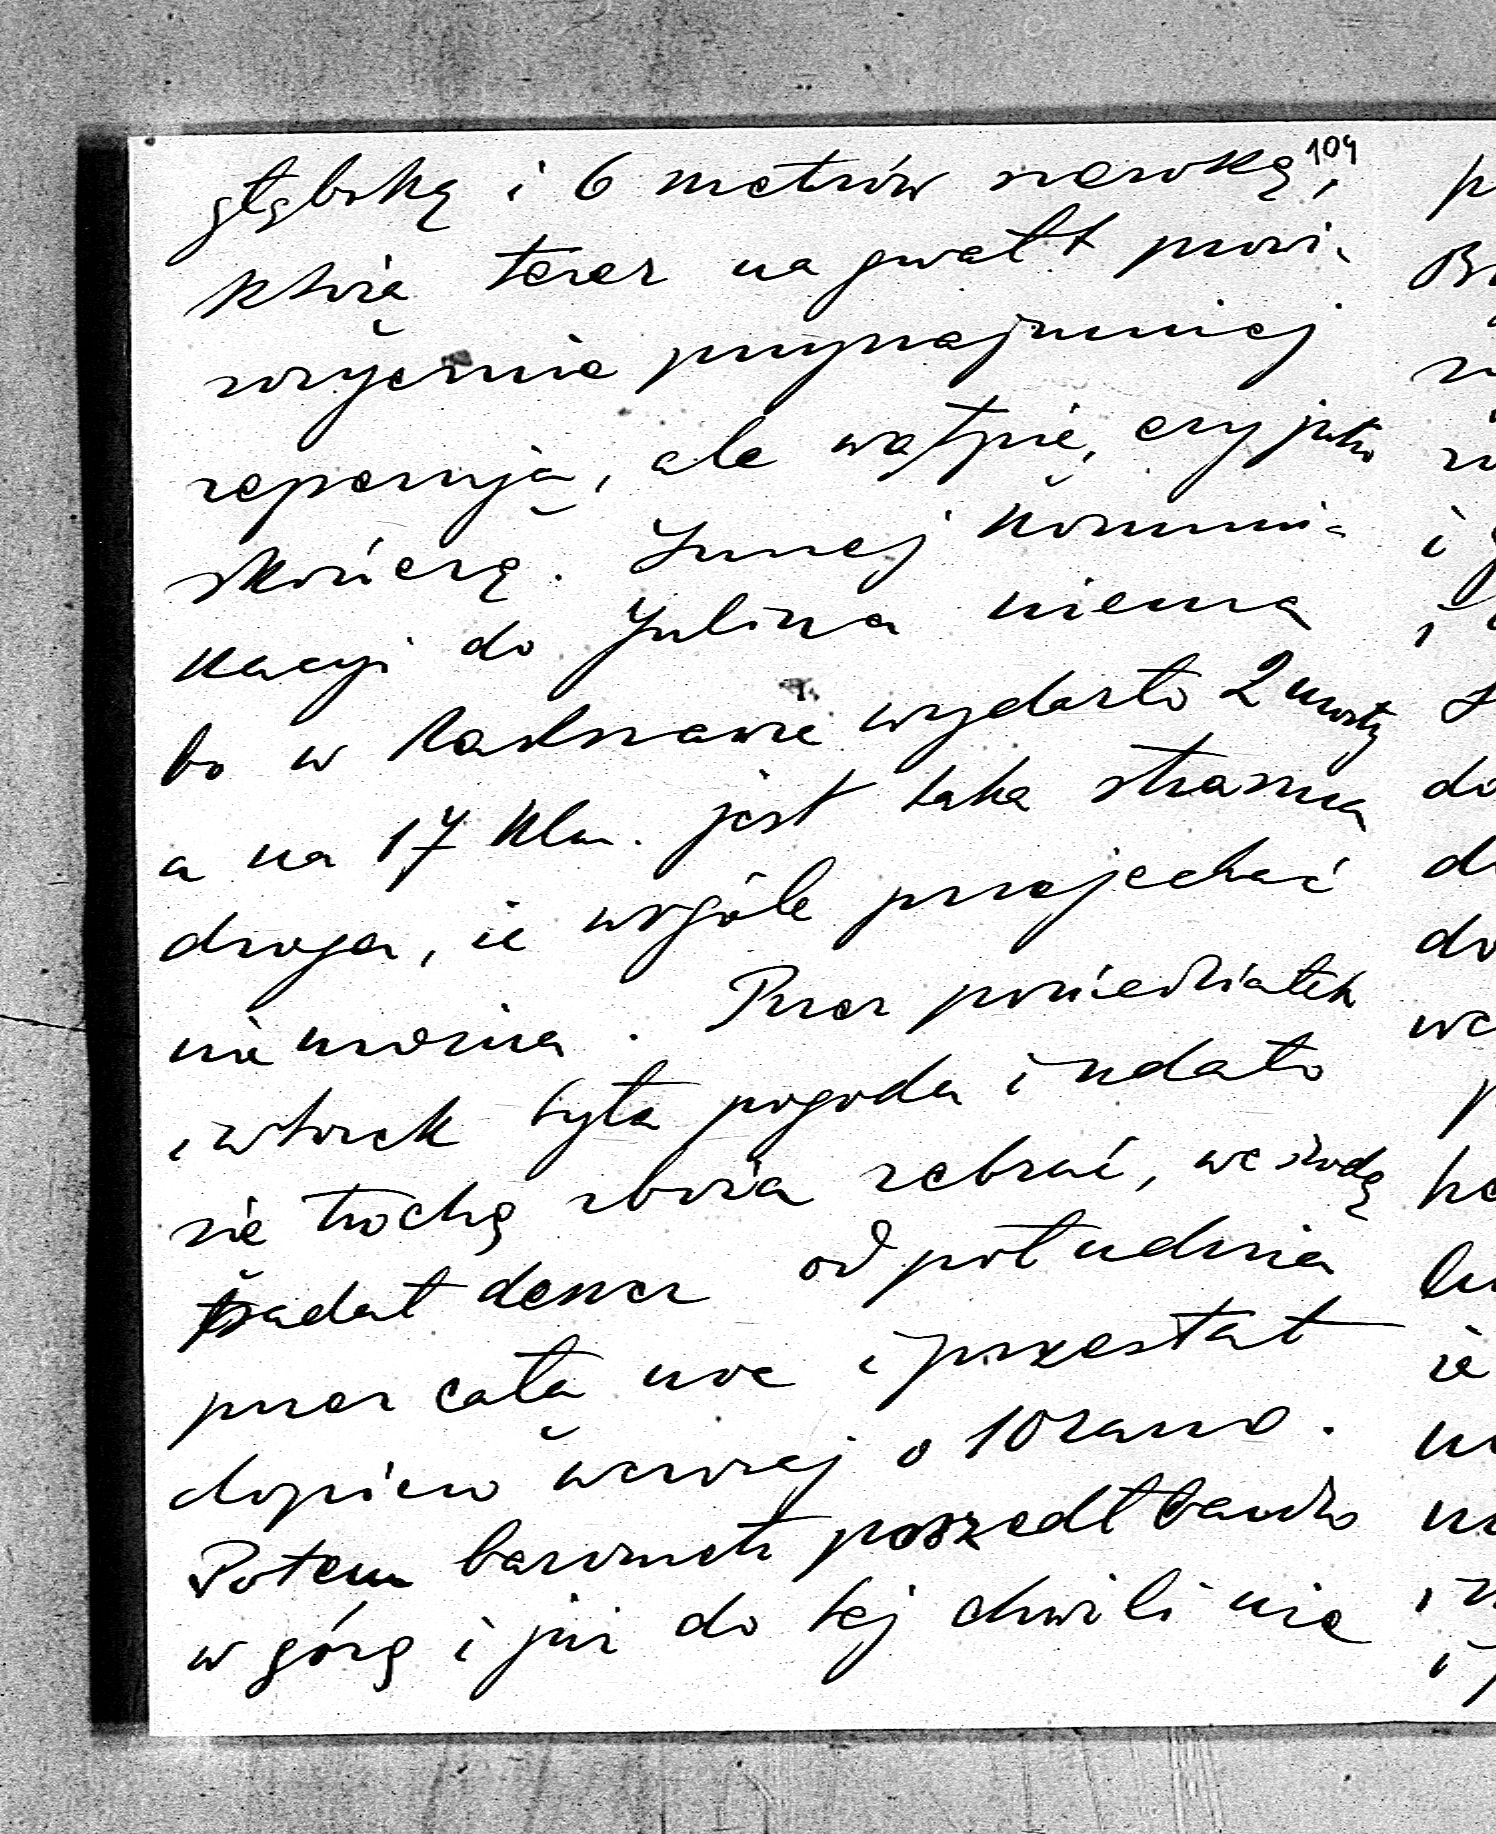 104
głęboką i 6 metrów szeroką,
którą teraz na gwałt prowi-
zorycznie przynajmniej
reperują, ale wątpię, czy jutro
skończą. Innej komuni-
kacyi do Julina niema
bo w Rakszawie wydarło 2 mosty
a na 17 klm. jest taka straszna
droga, że wogóle przejechać
nie można. Przez poniedziałek
i wtorek była pogoda i udało
się trochę zboża zebrać, we środę
padał deszcz od południa
przez całą noc i przestał
dopiero wczoraj o 10 rano.
Potem barometr poszedł bardzo
w górę i już do tej chwili nie